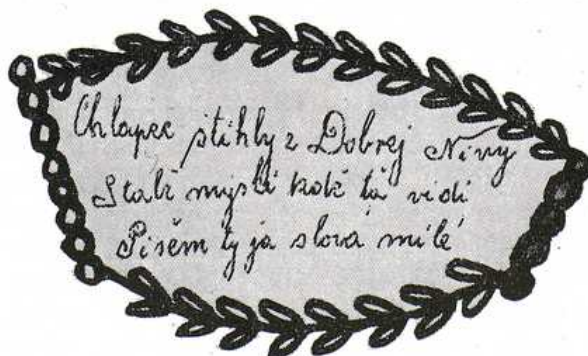 Chlapec štihly z Dobrej Nivy
Stálť myslí kolť ťa vidí
Pisěm ty já slová milé